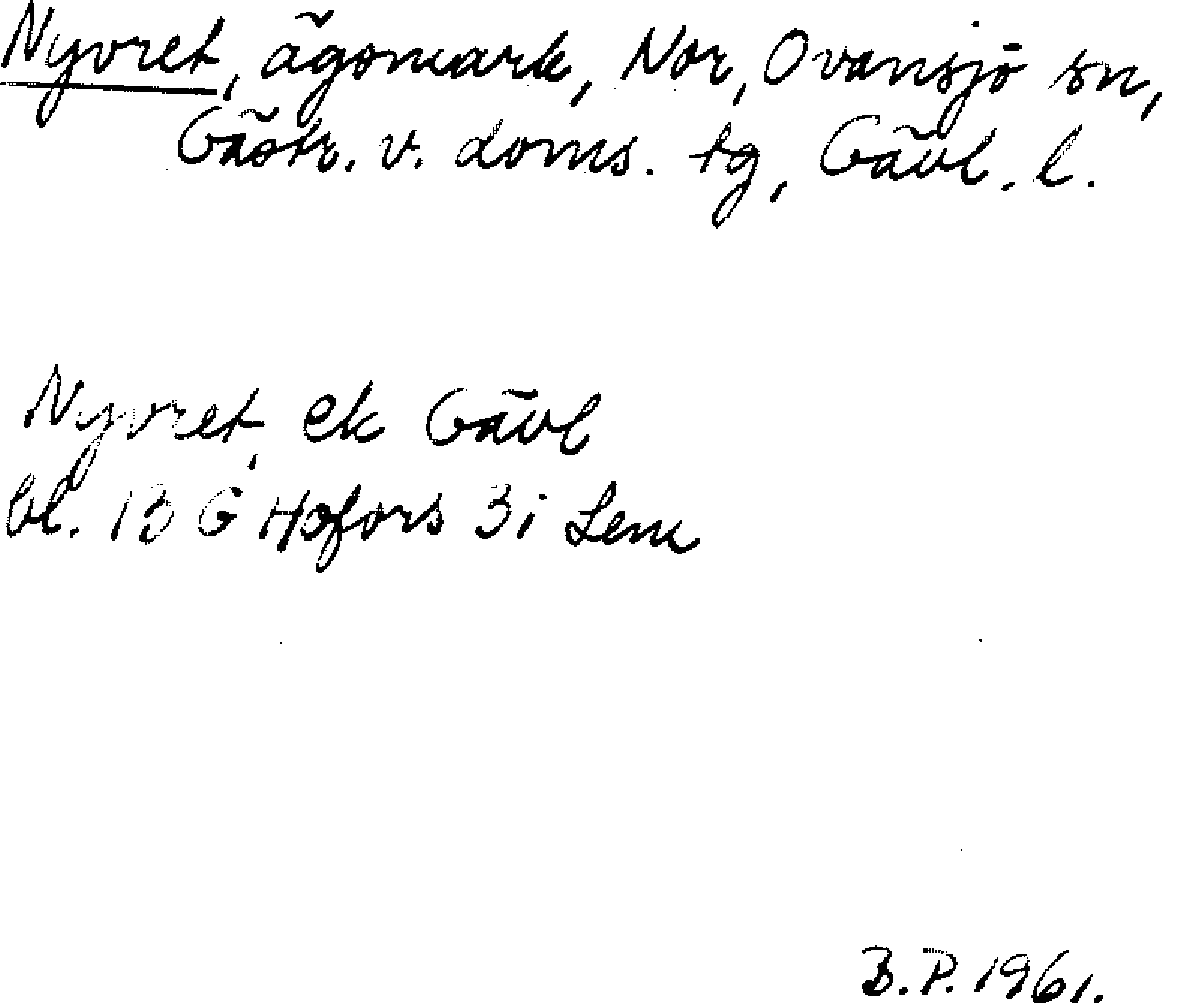 Nyvret, ägomark, Nor, Ovansjö sn,
Gästr. v. doms. tg, Gävl. l.
Nyvret, ek Gävl
bl. 13 G Hofors 3i Lem
B.P. 1961.